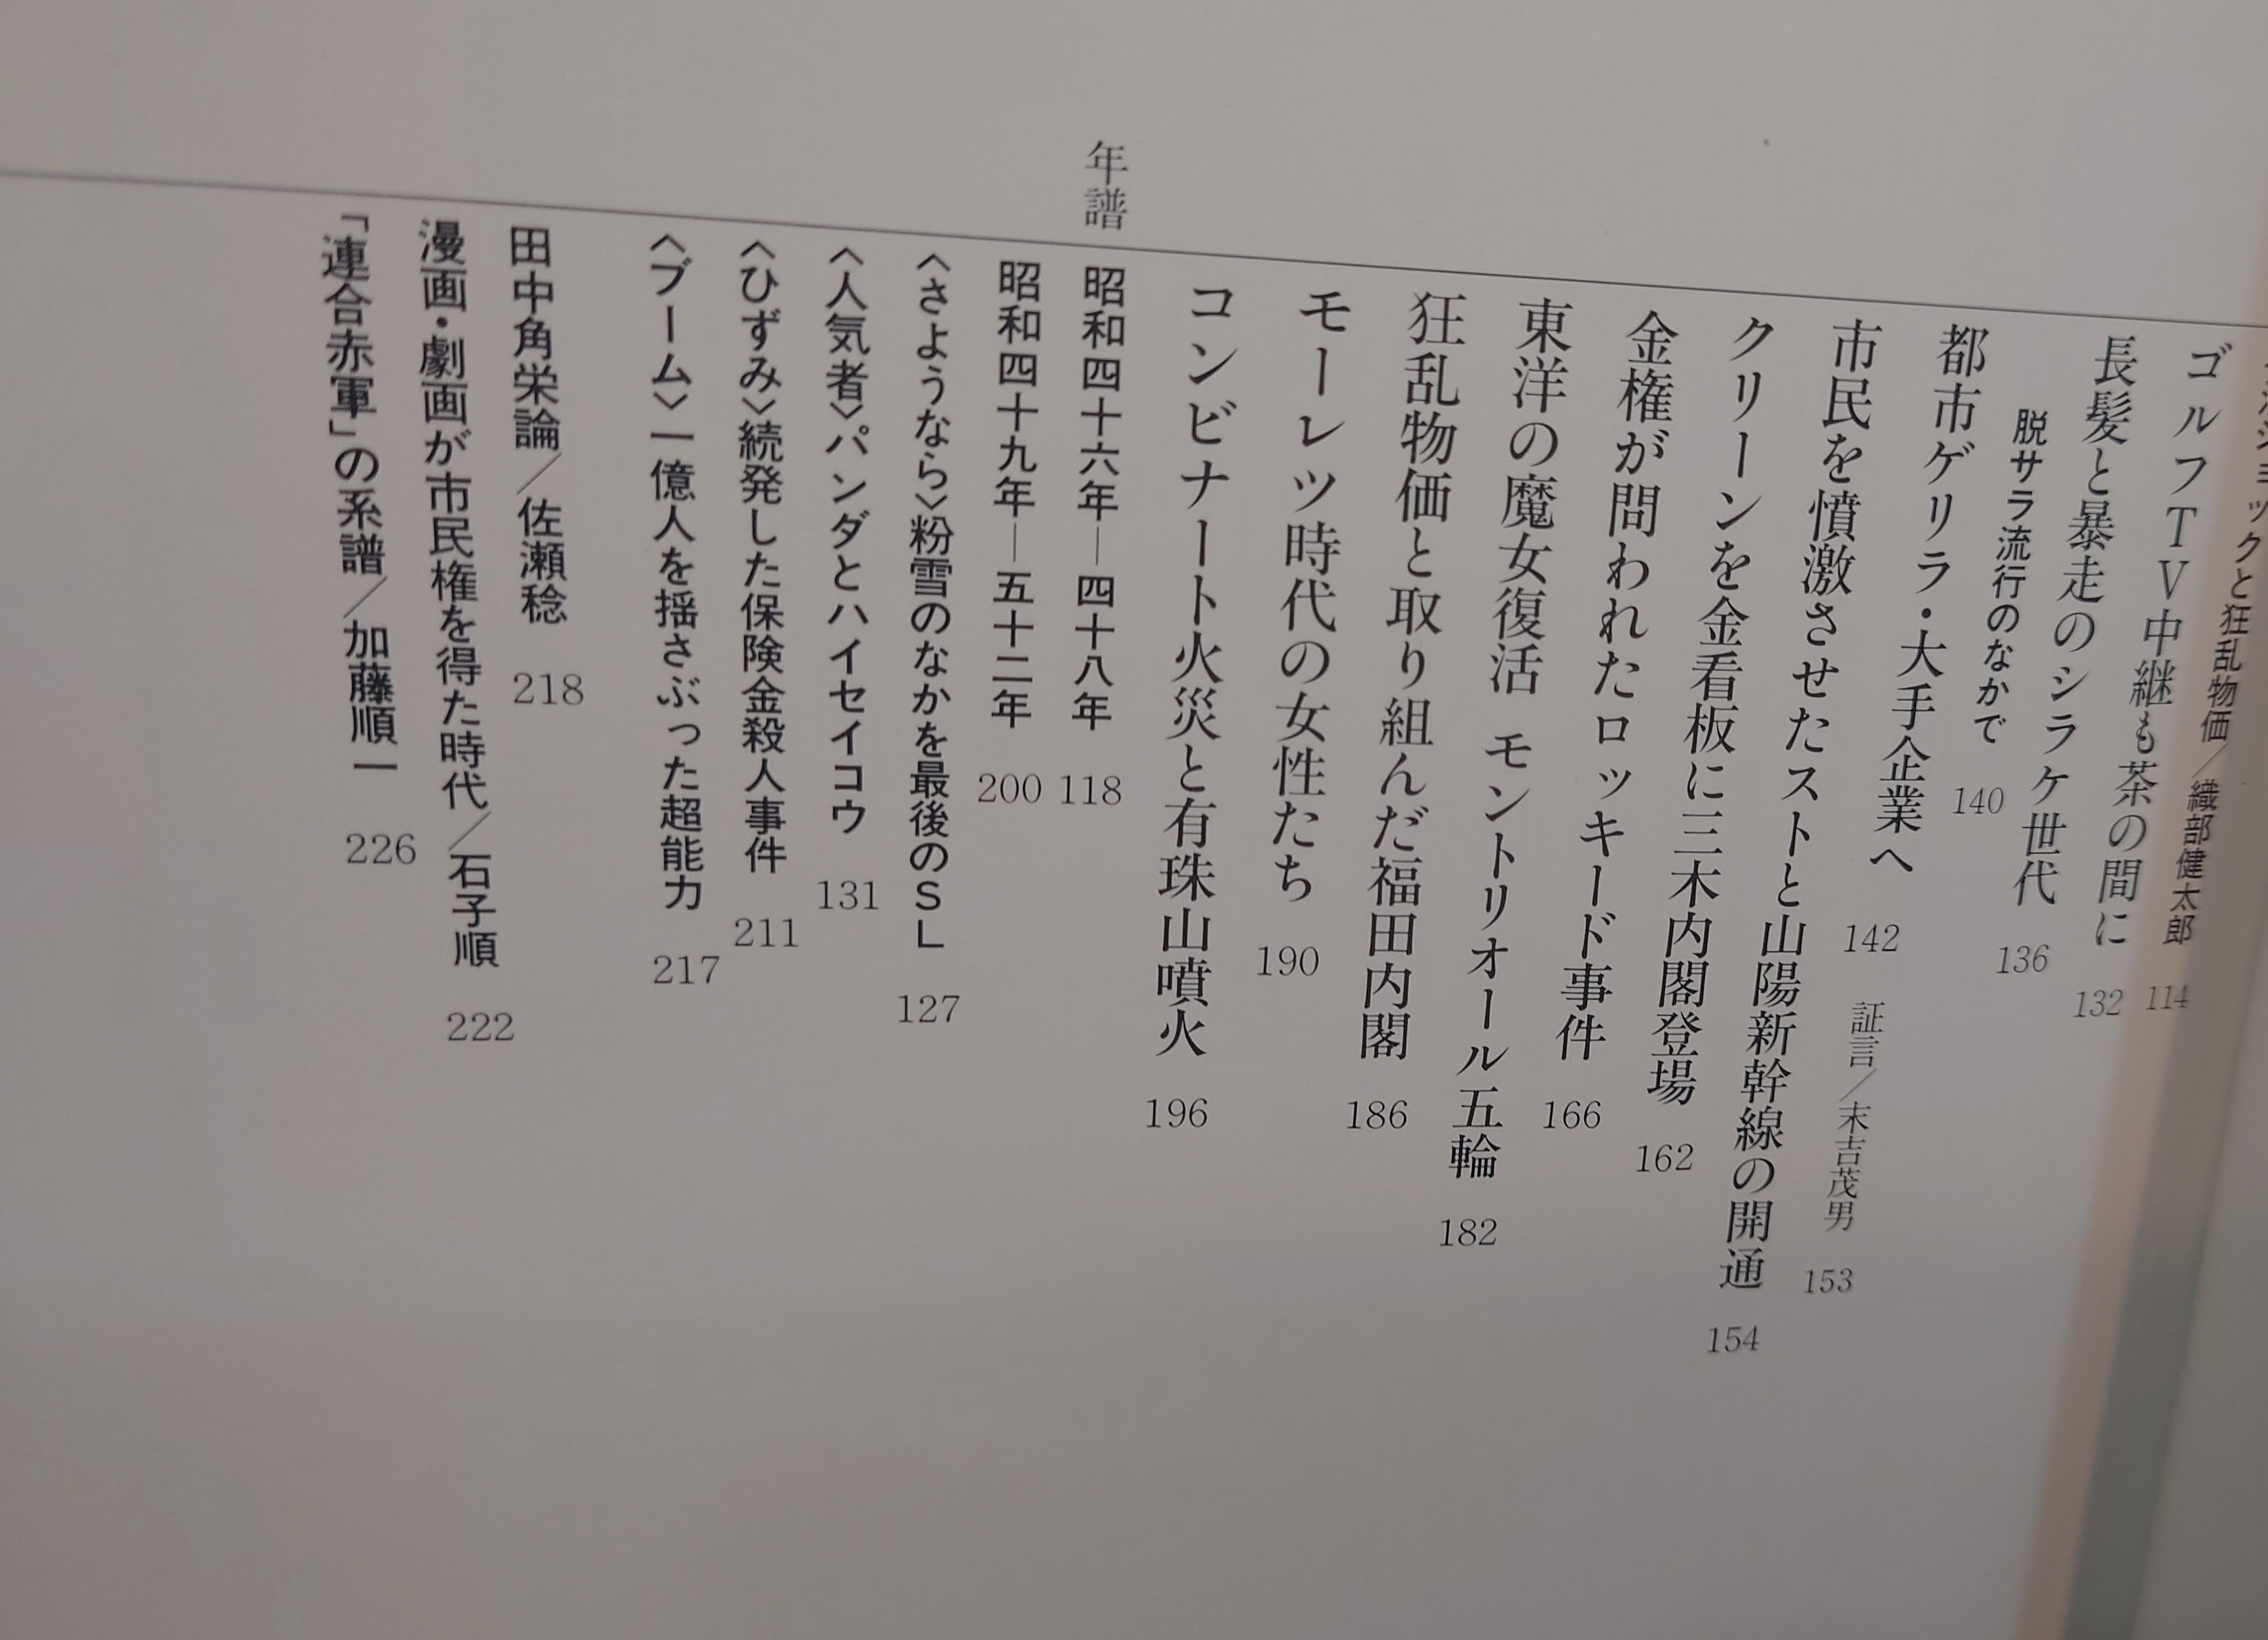 ックと狂乱物価／織部健太郎 114
ゴルフTV中継も茶の間に 132
長髪と暴走のシラケ世代 136
脱サラ流行のなかで 140
都市ゲリラ・大手企業へ 142
証言／末吉茂男 153
市民を憤激させたストと山陽新幹線の開通 154
クリーンを金看板に三木内閣登場 162
金権が問われたロッキード事件 166
東洋の魔女復活 モントリオール五輪 182
狂乱物価と取り組んだ福田内閣 186
モーレツ時代の女性たち 190
コンビナート火災と有珠山噴火 196
年譜
昭和四十六年―四十八年 118
昭和四十九年―五十二年 200
〈さようなら〉粉雪のなかを最後のSL 127
〈人気者〉パンダとハイセイコウ 131
〈ひずみ〉続発した保険金殺人事件 211
〈ブーム〉一億人を揺さぶった超能力 217
田中角栄論／佐瀬稔 218
漫画・劇画が市民権を得た時代／石子順 222
「連合赤軍」の系譜／加藤順一 226